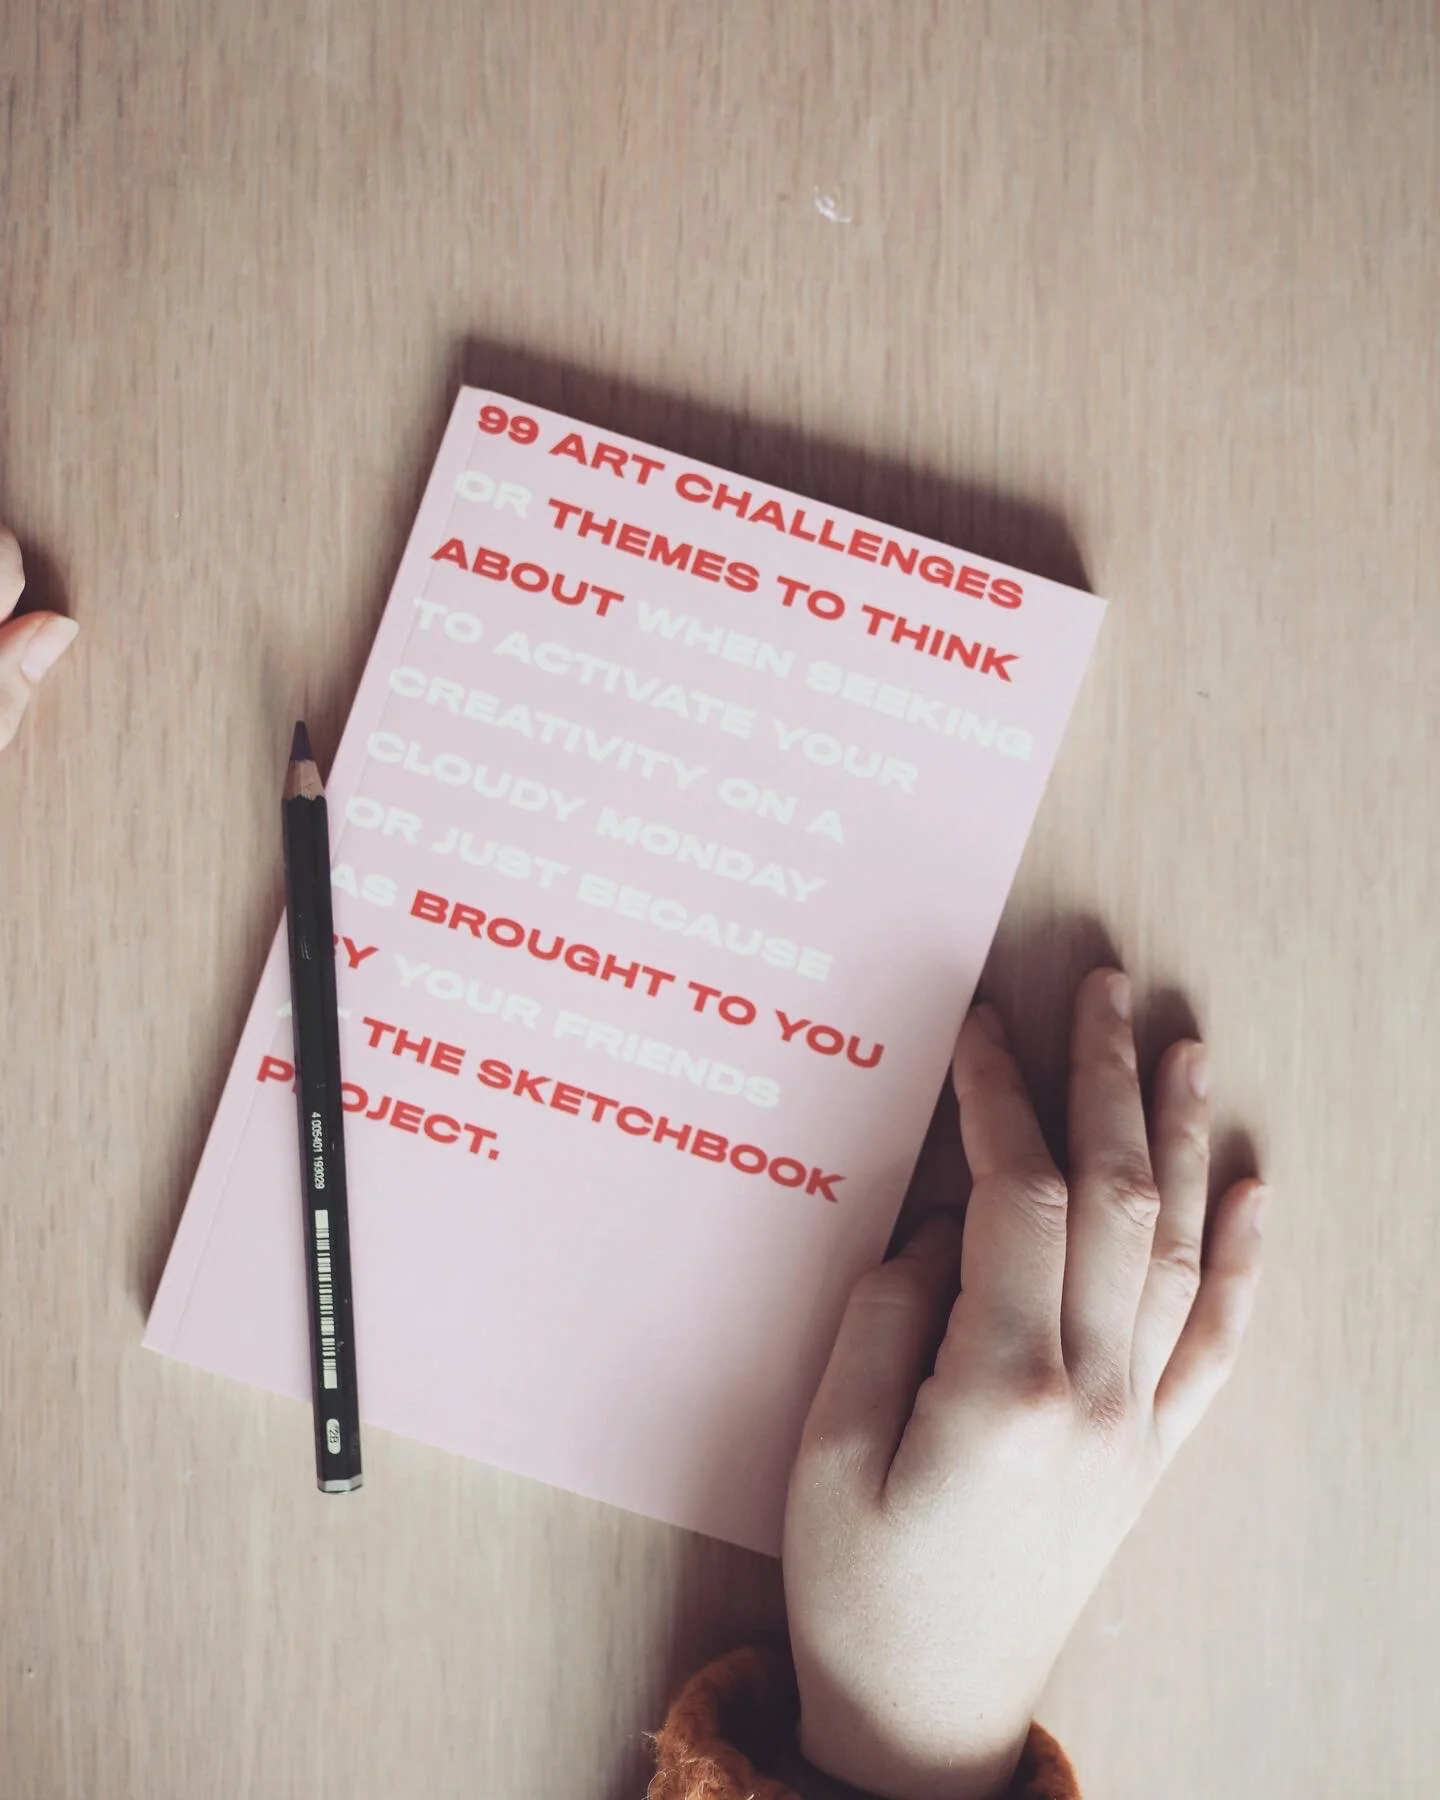 99 ART CHALLENGES
OR THEMES TO THINK
ABOUT WHEN SEEKING
TO ACTIVATE YOUR
CREATIVITY ON A
CLOUDY MONDAY
OR JUST BECAUSE
AS BROUGHT TO YOU
BY YOUR FRIENDS
AT THE SKETCHBOOK
PROJECT.
4 005401 193029
2B